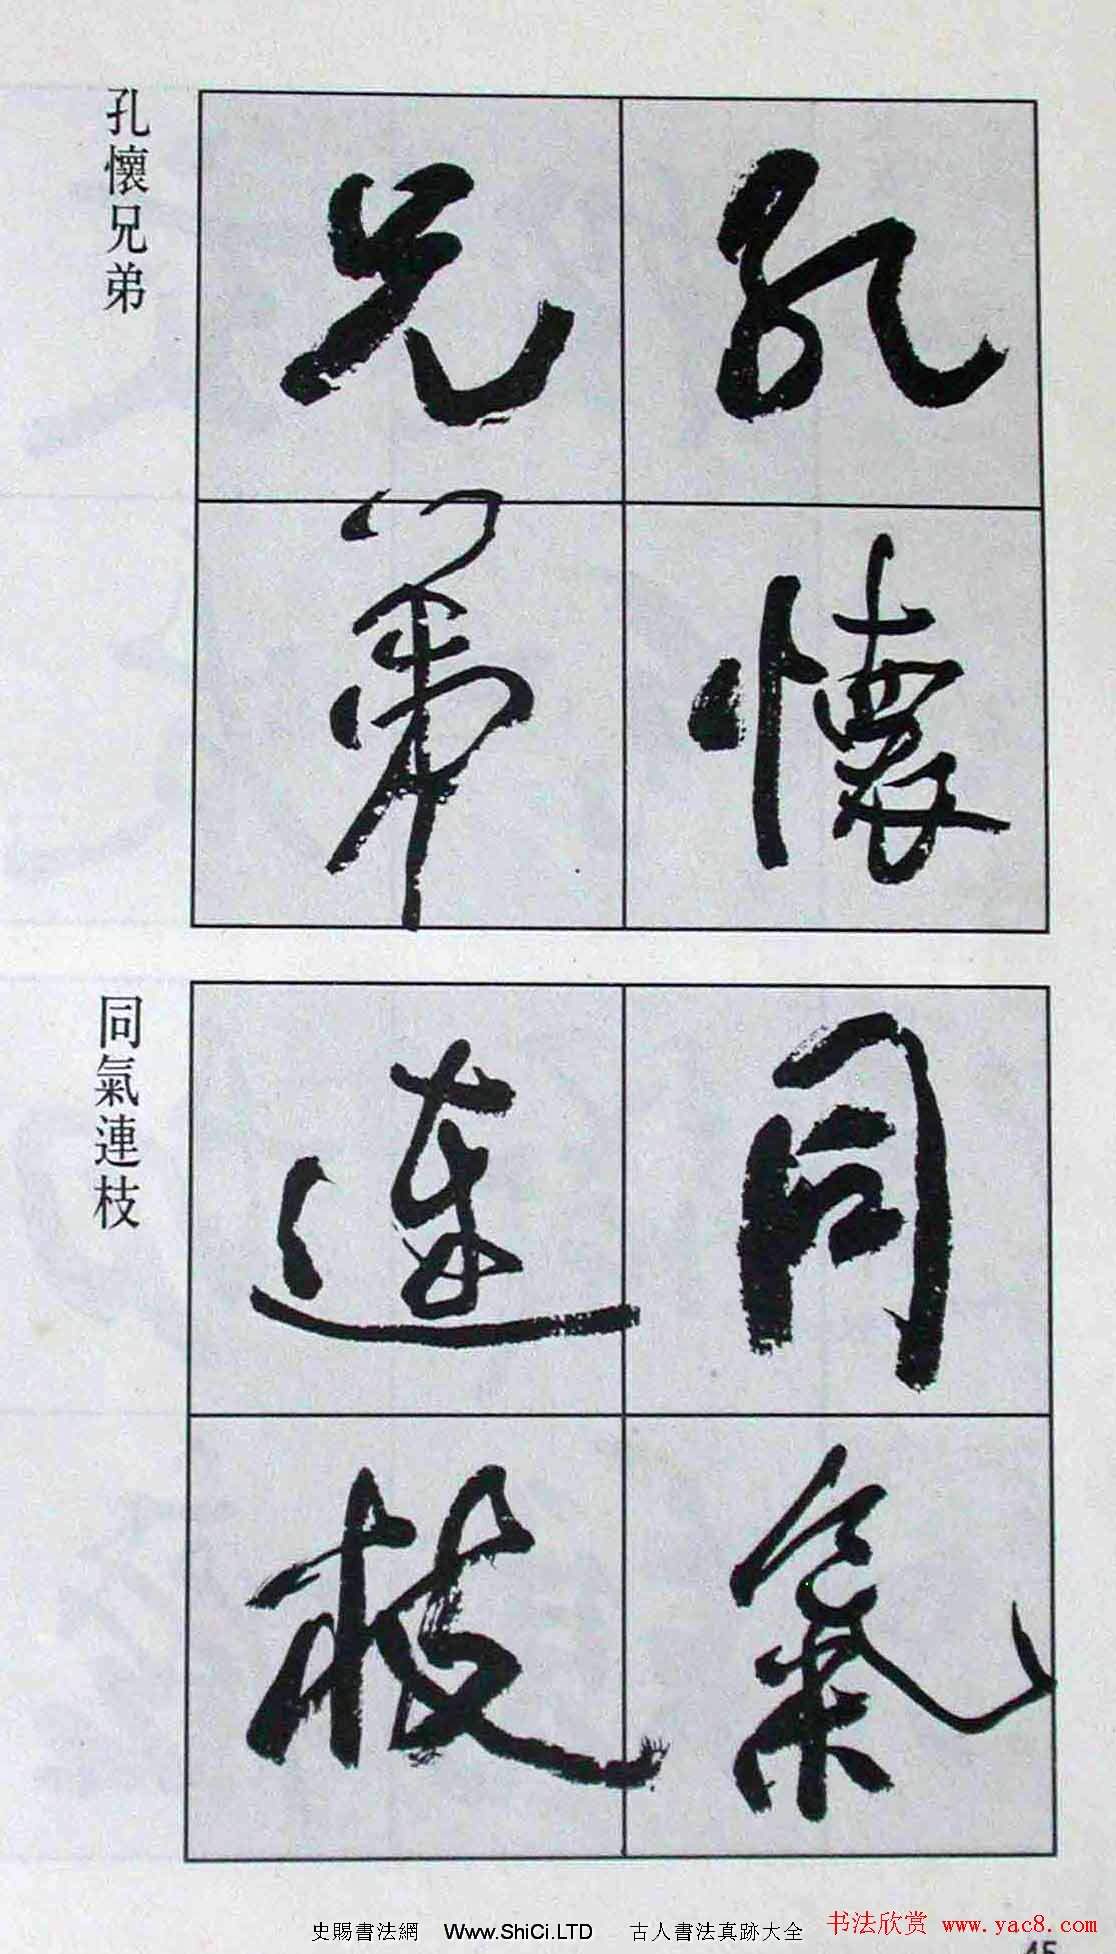 孔懷
兄弟
孔懷兄弟
同氣
連枝
同氣連枝
史賜書法網 Www.ShiCi.LTD 古人書法真跡大全
书法欣赏 www.yac8.com
45